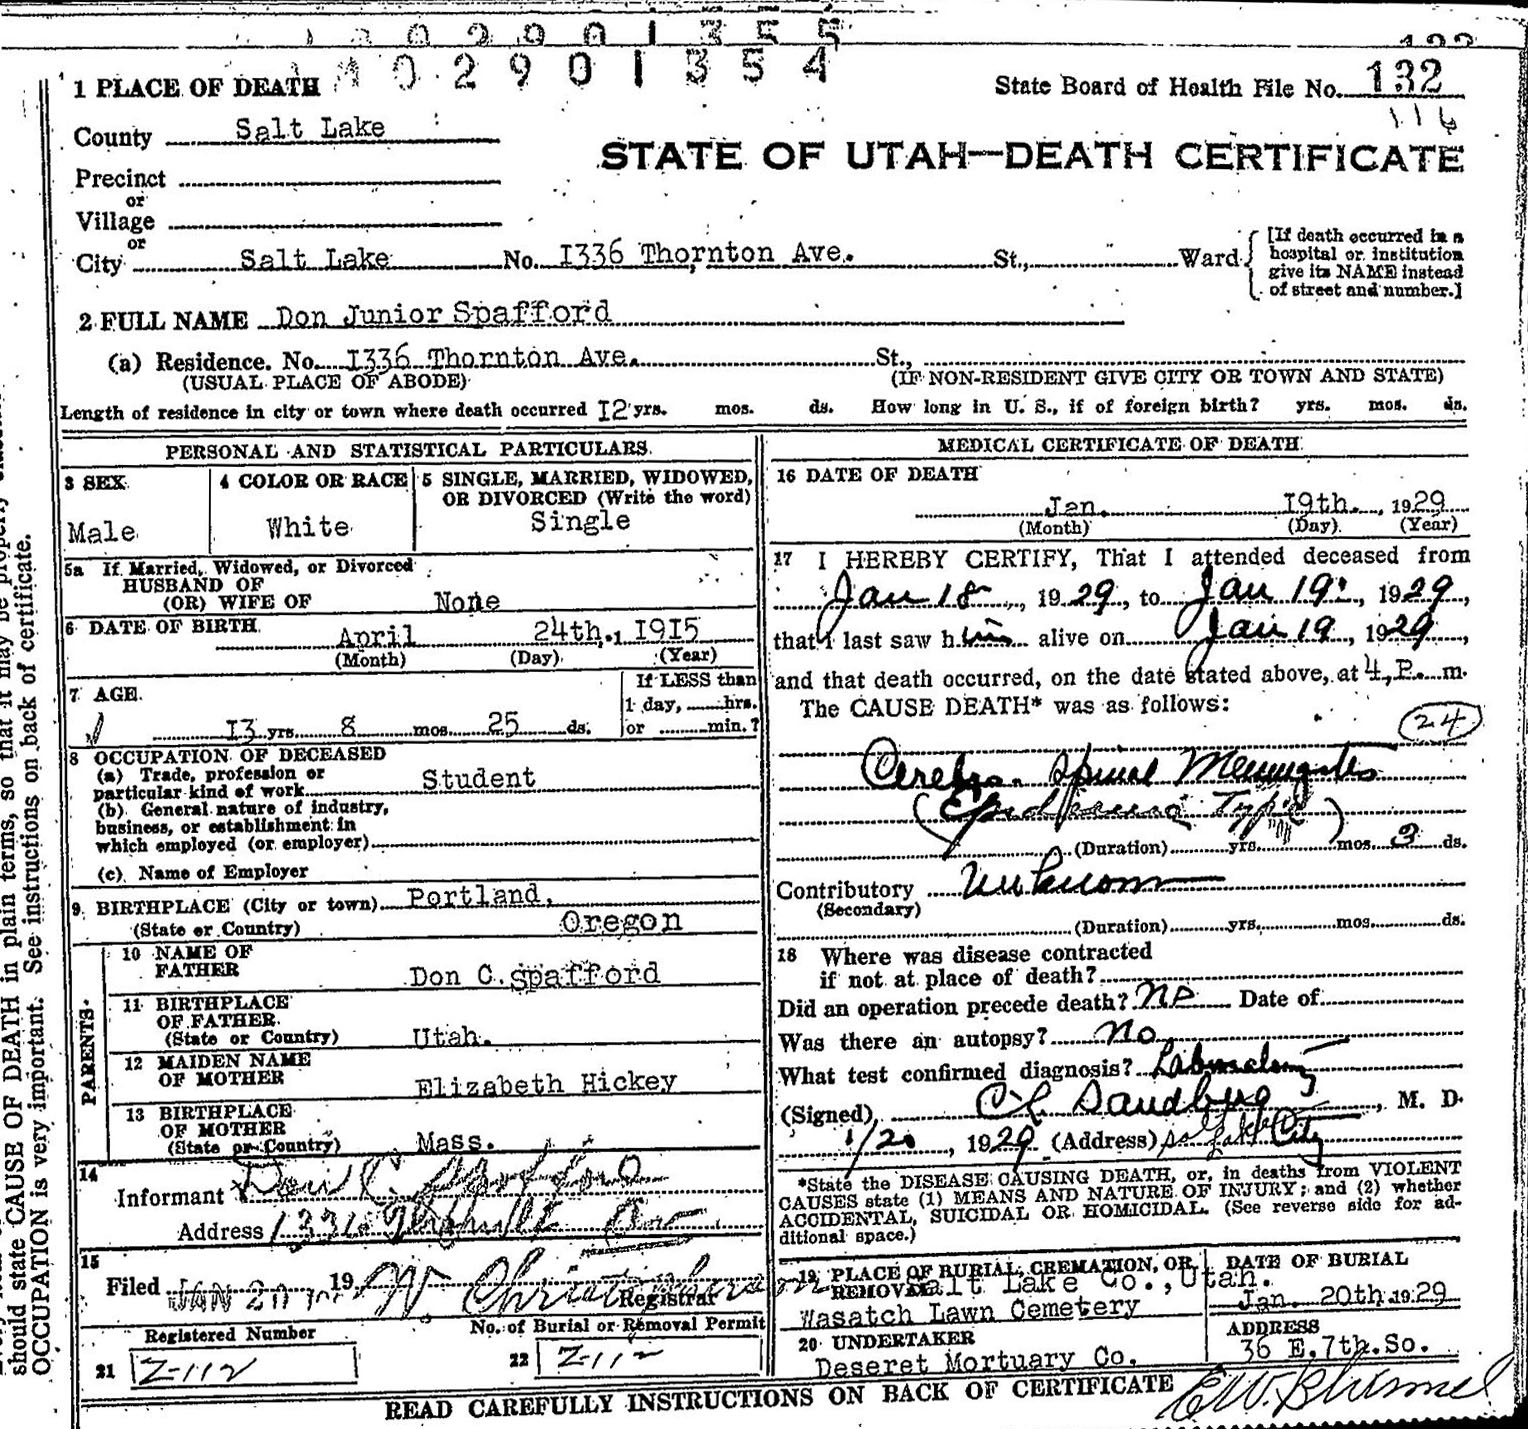 102901355
102901354
1 PLACE OF DEATH
State Board of Health File No. 132
116
County Salt Lake
STATE OF UTAH—DEATH CERTIFICATE
Precinct
or
Village
or
City Salt Lake No. 1336 Thornton Ave. St., Ward
[If death occurred in a
hospital or institution
give its NAME instead
of street and number.]
2 FULL NAME Don Junior Spafford
(a) Residence. No. 1336 Thornton Ave. St.,
(USUAL PLACE OF ABODE) (IF NON-RESIDENT GIVE CITY OR TOWN AND STATE)
Length of residence in city or town where death occurred 12 yrs. mos. ds. How long in U. S., if of foreign birth? yrs. mos. ds.
PERSONAL AND STATISTICAL PARTICULARS.
3 SEX
Male
4 COLOR OR RACE
White
5 SINGLE, MARRIED, WIDOWED,
OR DIVORCED (Write the word)
Single
5a If Married, Widowed, or Divorced
HUSBAND OF
(OR) WIFE OF None
6 DATE OF BIRTH April 24th., 1915
(Month) (Day) (Year)
7 AGE
13 yrs. 8 mos. 25 ds.
If LESS than
1 day, hrs.
or min.?
8 OCCUPATION OF DECEASED
(a) Trade, profession or
particular kind of work Student
(b) General nature of industry,
business, or establishment in
which employed (or employer)
(c) Name of Employer
9. BIRTHPLACE (City or town) Portland,
(State or Country) Oregon
PARENTS.
10 NAME OF
FATHER Don C. Spafford
11 BIRTHPLACE
OF FATHER
(State or Country) Utah.
12 MAIDEN NAME
OF MOTHER Elizabeth Hickey
13 BIRTHPLACE
OF MOTHER
(State or Country) Mass.
14
Informant Don C. Spafford
Address 1336 Thornton Ave.
15
Filed JAN 20 19 W Christopherson
Registrar
Registered Number
21 Z-112
No. of Burial or Removal Permit
22 Z-112
MEDICAL CERTIFICATE OF DEATH
16 DATE OF DEATH
Jan. 19th., 1929
(Month) (Day) (Year)
17 I HEREBY CERTIFY, That I attended deceased from
Jan 18, 1929, to Jan 19, 1929,
that I last saw him alive on Jan 19, 1929,
and that death occurred, on the date stated above, at 4 P. m.
The CAUSE DEATH* was as follows:
24
Cerebro-Spinal Meningitis
(Epidemic Type)
(Duration) yrs. mos. 3 ds.
Contributory Unknown
(Secondary)
(Duration) yrs. mos. ds.
18 Where was disease contracted
if not at place of death?
Did an operation precede death? no Date of
Was there an autopsy? no
What test confirmed diagnosis? Laboratory
(Signed) C L Sandberg, M. D.
1/20, 1929 (Address) Salt Lake City
*State the DISEASE CAUSING DEATH, or, in deaths from VIOLENT
CAUSES state (1) MEANS AND NATURE OF INJURY; and (2) whether
ACCIDENTAL, SUICIDAL OR HOMICIDAL. (See reverse side for ad-
ditional space.)
19 PLACE OF BURIAL, CREMATION, OR
REMOVAL Salt Lake Co., Utah.
Wasatch Lawn Cemetery
DATE OF BURIAL
Jan. 20th 1929
20 UNDERTAKER
Deseret Mortuary Co.
ADDRESS
36 E. 7th. So.
READ CAREFULLY INSTRUCTIONS ON BACK OF CERTIFICATE
should state CAUSE OF DEATH in plain terms, so that it may be properly
OCCUPATION is very important. See instructions on back of certificate.